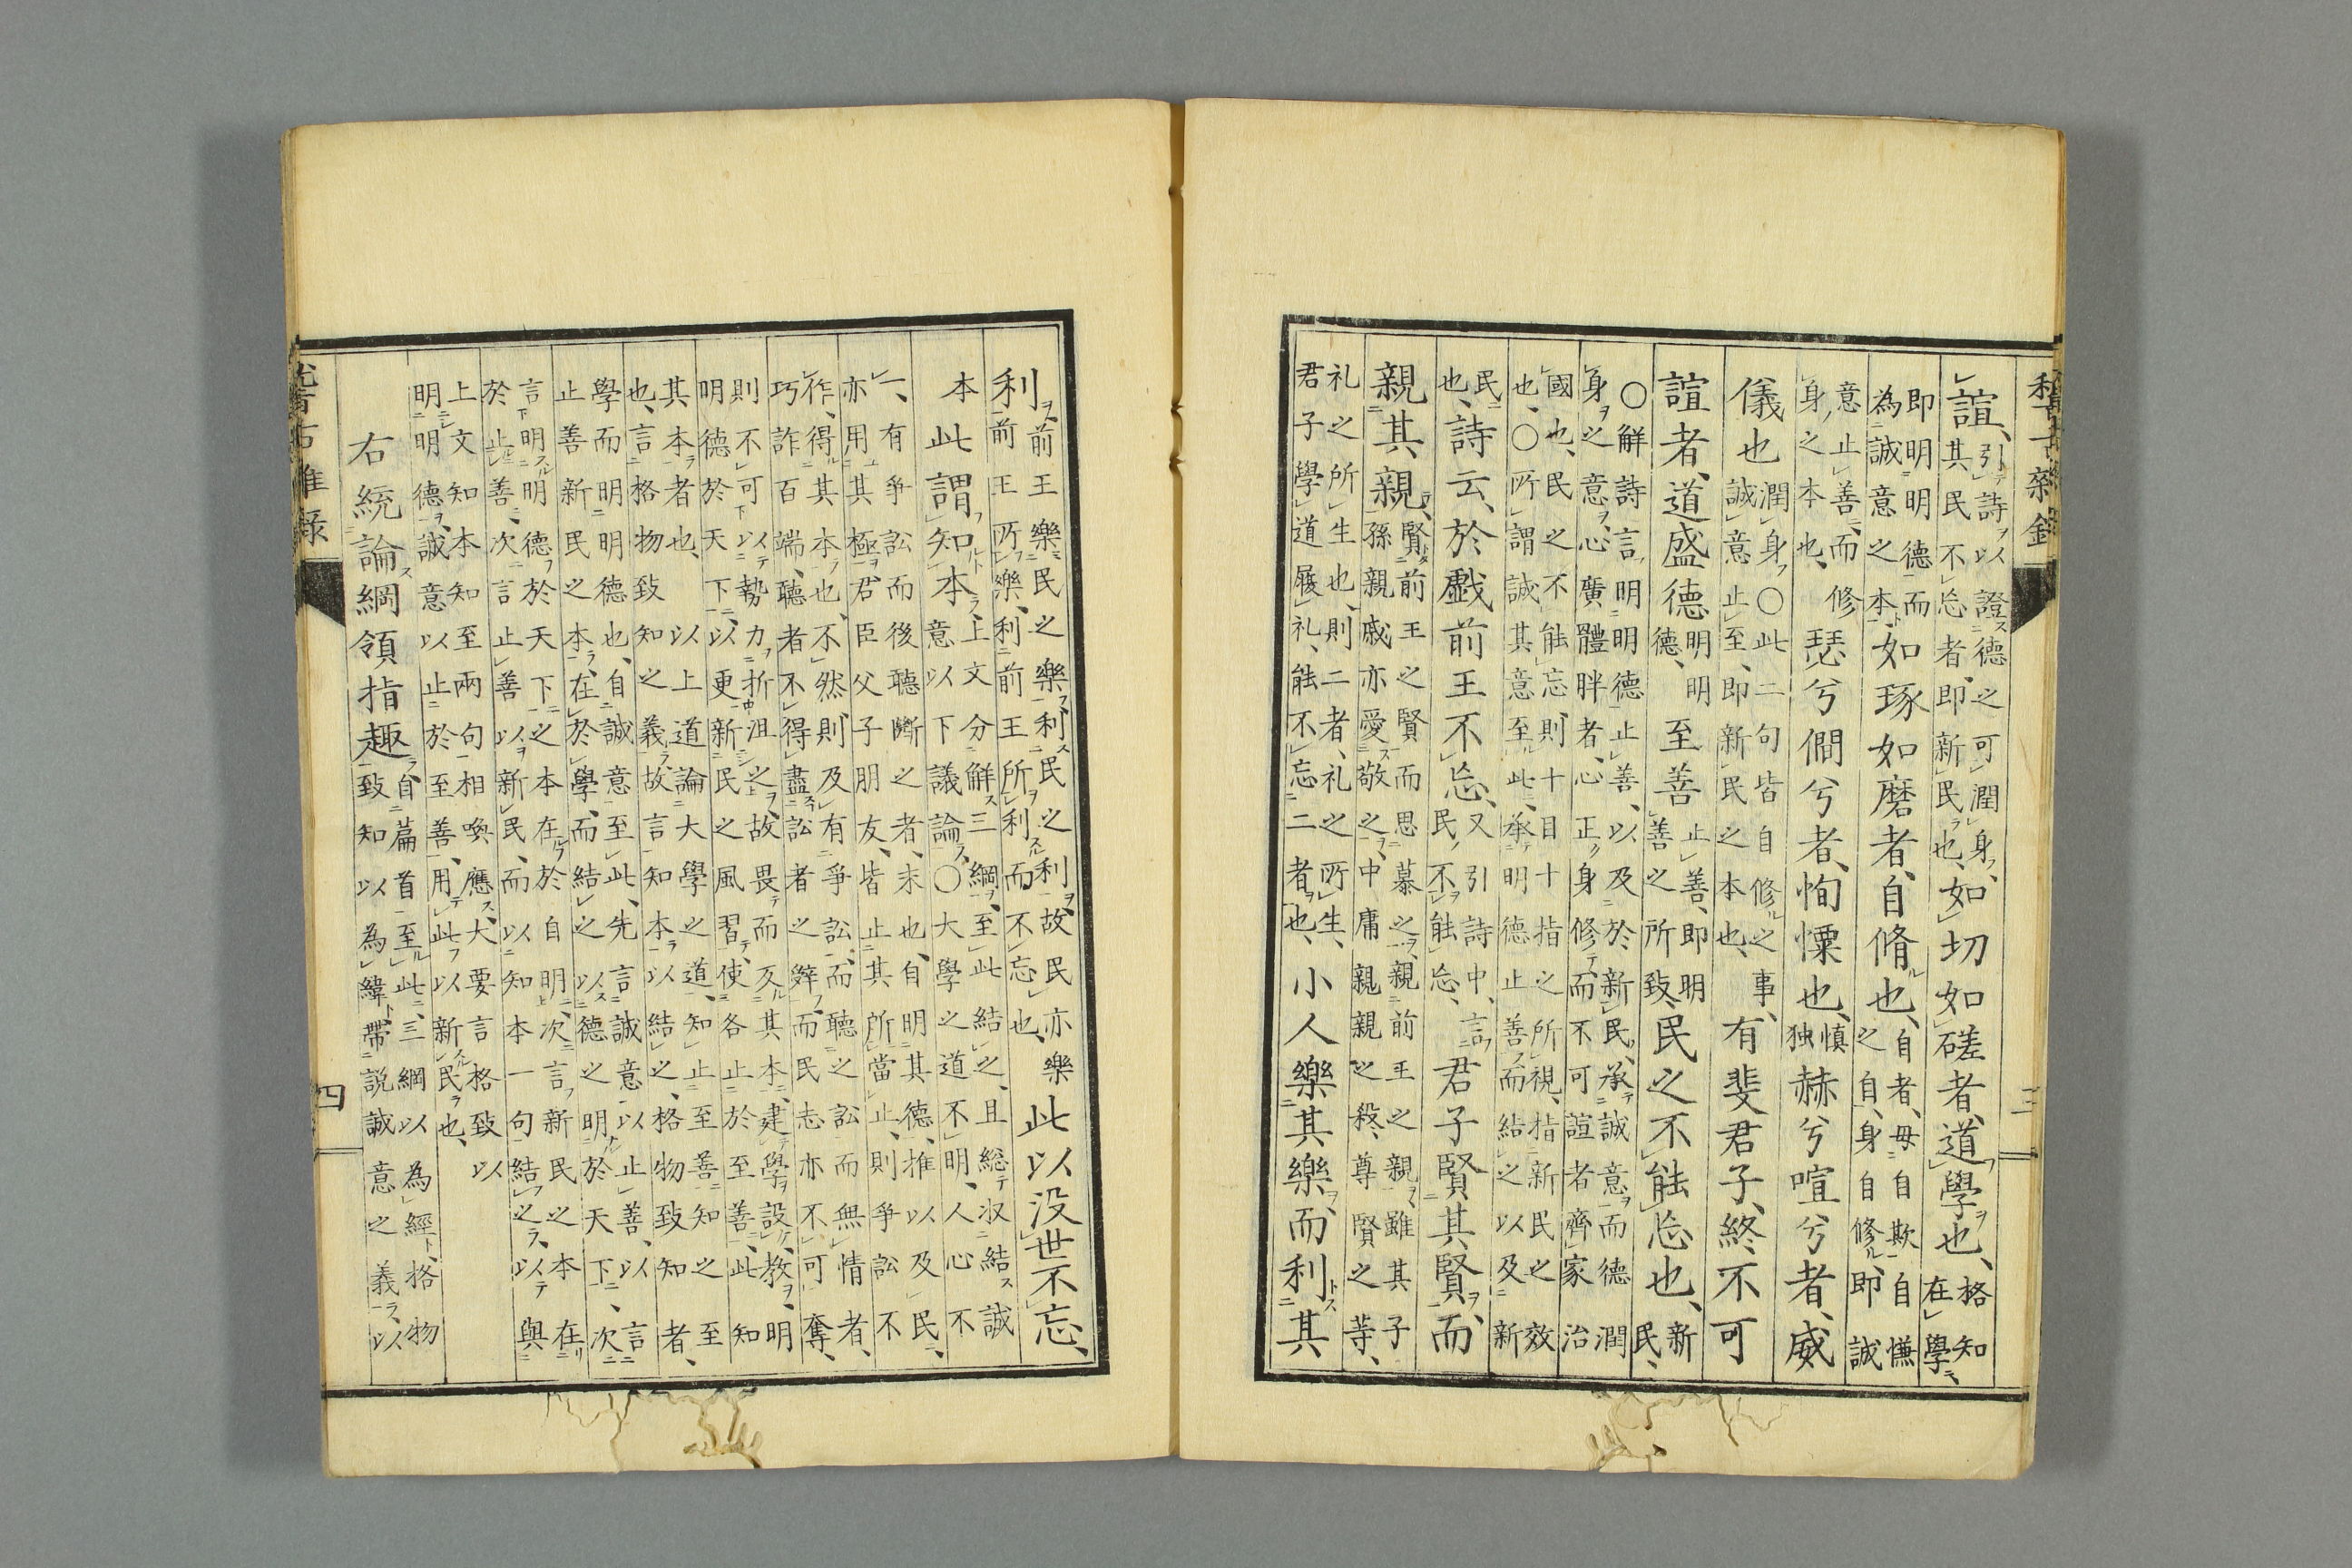 諠、引詩以證德之可潤身、其民不忘者、即新民也、如切如磋者、道學也、格知在學、
即明明德而為誠意之本、如琢如磨者、自脩也、自者、毋自欺自慊之自、身自修、即誠
意止善、而修身之本也、瑟兮僩兮者、恂慄也、慎独赫兮喧兮者、威
儀也潤身〇此二句皆自修之事、誠意止至、即新民之本也、有斐君子、終不可
諠者、道盛德明明德、至善止善、即明善之所致、民之不能忘也、新民、
〇解詩言、明明德止善、以及於新民、承誠意而德潤身之意、心廣體胖者、心正身修、而不可諠者齊家治
國也、民之不能忘、則十目十指之所視指、新民之效也、〇所謂誠其意至此、承明德止善、而結之以及新
民也、詩云、於戯前王不忘、又引詩中、言民不能忘、君子賢其賢、而
親其親、賢前王之賢而思慕之、親前王之親、雖其子孫親戚亦愛敬之、中庸親親之殺、尊賢之等、
礼之所生也、則二者、礼之所生、君子學道履礼、能不忘二者也、小人樂其樂、而利其
三
利、前王樂民之樂、利民之利、故民亦樂前王所樂、利前王所利、而不忘也、此以没世不忘、
本此謂知本、上文分解三綱、至此結之、且総収結誠意以下議論、〇大學之道不明、人心不
一、有爭訟而後聽斷之者、末也、自明其德、推以及民、亦用其極、君臣父子朋友、皆止其所當止、則爭訟不
作、得其本也、不然、則及有爭訟、而聽之訟而無情者、巧詐百端、聽者不得盡訟者之辭、而民志亦不可奪、
則不可以勢力折沮之、故畏而反其本、建學設教、明明德於天下、以更新民之風習、使各止於至善、此知
其本者也、以上道論大學之道、知止至善知之至也、言格物致知之義、故言知本以結之、格物致知者、
學而明明德也、自誠意至此、先言誠意以止善、以言止善新民之本、在於學、而結之以德之明於天下、次
言明明德於天下之本在於自明、次言新民之本在於止善、次言止善以新民、而以知本一句結之、以與
上文知本知至兩句相喚應、大要言格致以明明德、誠意以止於至善、用此以新民也、
右統論綱領指趣、自篇首至此、三綱以為經、格物致知以為緯、帶説誠意之義、以
四